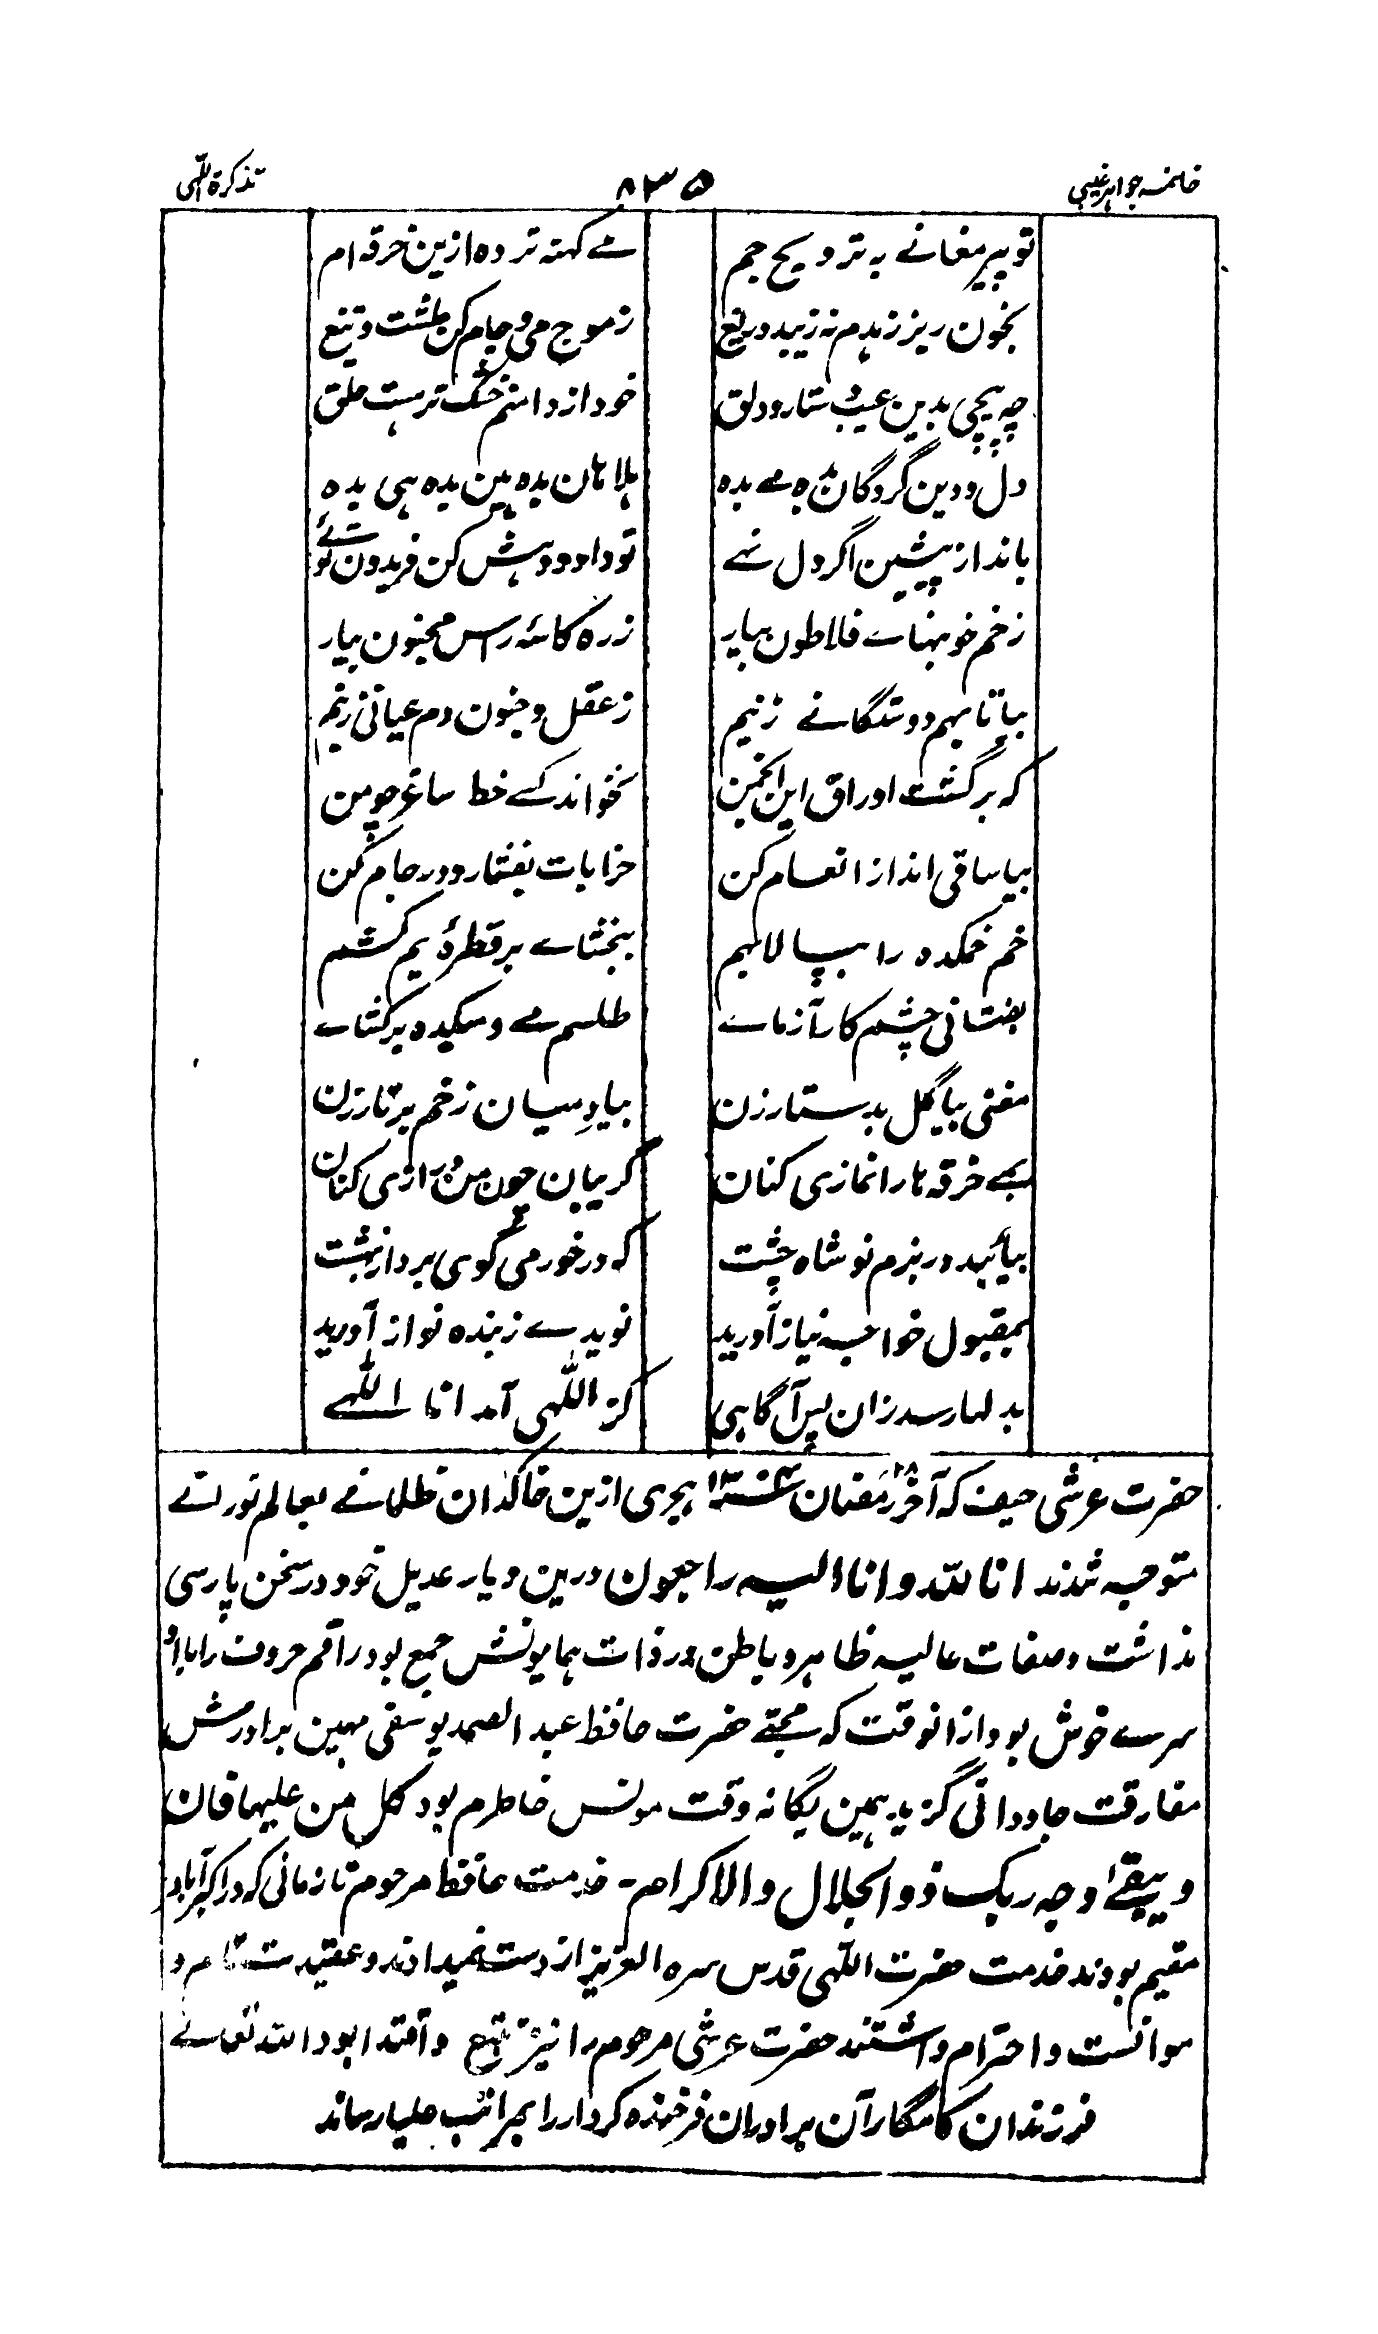 خاتمہ جواہر غیبی
۸۳۵
تذکرۃ اللہی
تو پیر مغانے بہ ترویح جم
مے کہنہ تر دہ ازین خرقہ ام
بخون ریز زہدم نہ زیبد دریغ
ز موج می و جام کن طشت و تیغ
چہ پیچی بدین عیب ستار و دلق
خود از دامنم خشک ترہست حلق
دل و دین گروگان بدہ مے بدہ
ہلا ہان بدہ ہین بدہ ہی بدہ
بانداز پیشین اگر دل نہے
تو داد و دہش کن فریدون توئے
ز خم خونبہاے فلاطون بیار
ز رہ کاسۂ راس مجنون بیار
بیا تا بہم دوستگانے زنیم
ز عقل و جنون دم عیانی زنیم
کہ برگشت اوراق این انجمن
نخواند کسے خط ساغر چو من
بیا ساقی انداز انعام کن
خرابات بفشار و در جام کن
خم خمکدہ را بپالا بہم
ببخشاے بر قطرۂ یم کشم
بفتانی چشم کار آزماے
طلسم مے و میکدہ برکشاے
مغنی بیا گل بدستار زن
بیادِ میان زخمہ بر تار زن
بمے خرقہ ہا را نمازی کنان
گریبان چون من درازی کنان
بیائید در بزم نوشاہ چشت
کہ در خورمی گوی برد از بہشت
بمقبول خواجہ نیاز آورید
نویدے ز بندہ نواز آورید
بدلہا رسد زان پس آگاہی
کز اللہی آمد انا اللہے
حضرت عرشی حیف کہ آخر رمضان ہجری ازین خاکدان ظلمانے بعالم نورانے
متوجہ شدند انا للہ و انا الیہ راجعون درین دیار عدیل خود در سخن پارسی
نداشت و صفات عالیہ ظاہر و باطن در ذات ہمایونش جمع بود راقم حروف را با او
سرے خوش بود از انوقت کہ مجتبے حضرت حافظ عبد الصمد یوسفی مہین برادرش
مفارقت جاودانی گزید ہمین یگانہ وقت مونس خاطرم بود کل من علیہا فان
و یبقےٰ وجہ ربک ذو الجلال والاکرام ۔ خدمت حافظ مرحوم تا زمانی کہ در اکبرآباد
مقیم بودند خدمت حضرت اللہی قدس سرہ العزیز از دست نمیدادند و عقیدت تامہ و
موانست و احترام داشتند حضرت عرشی مرحوم را نیز تتبع و اقتدا بود اللہ تعالے
فرزندان کامگار آن برادران فرخندہ کردار را بمراتب علیا رساند